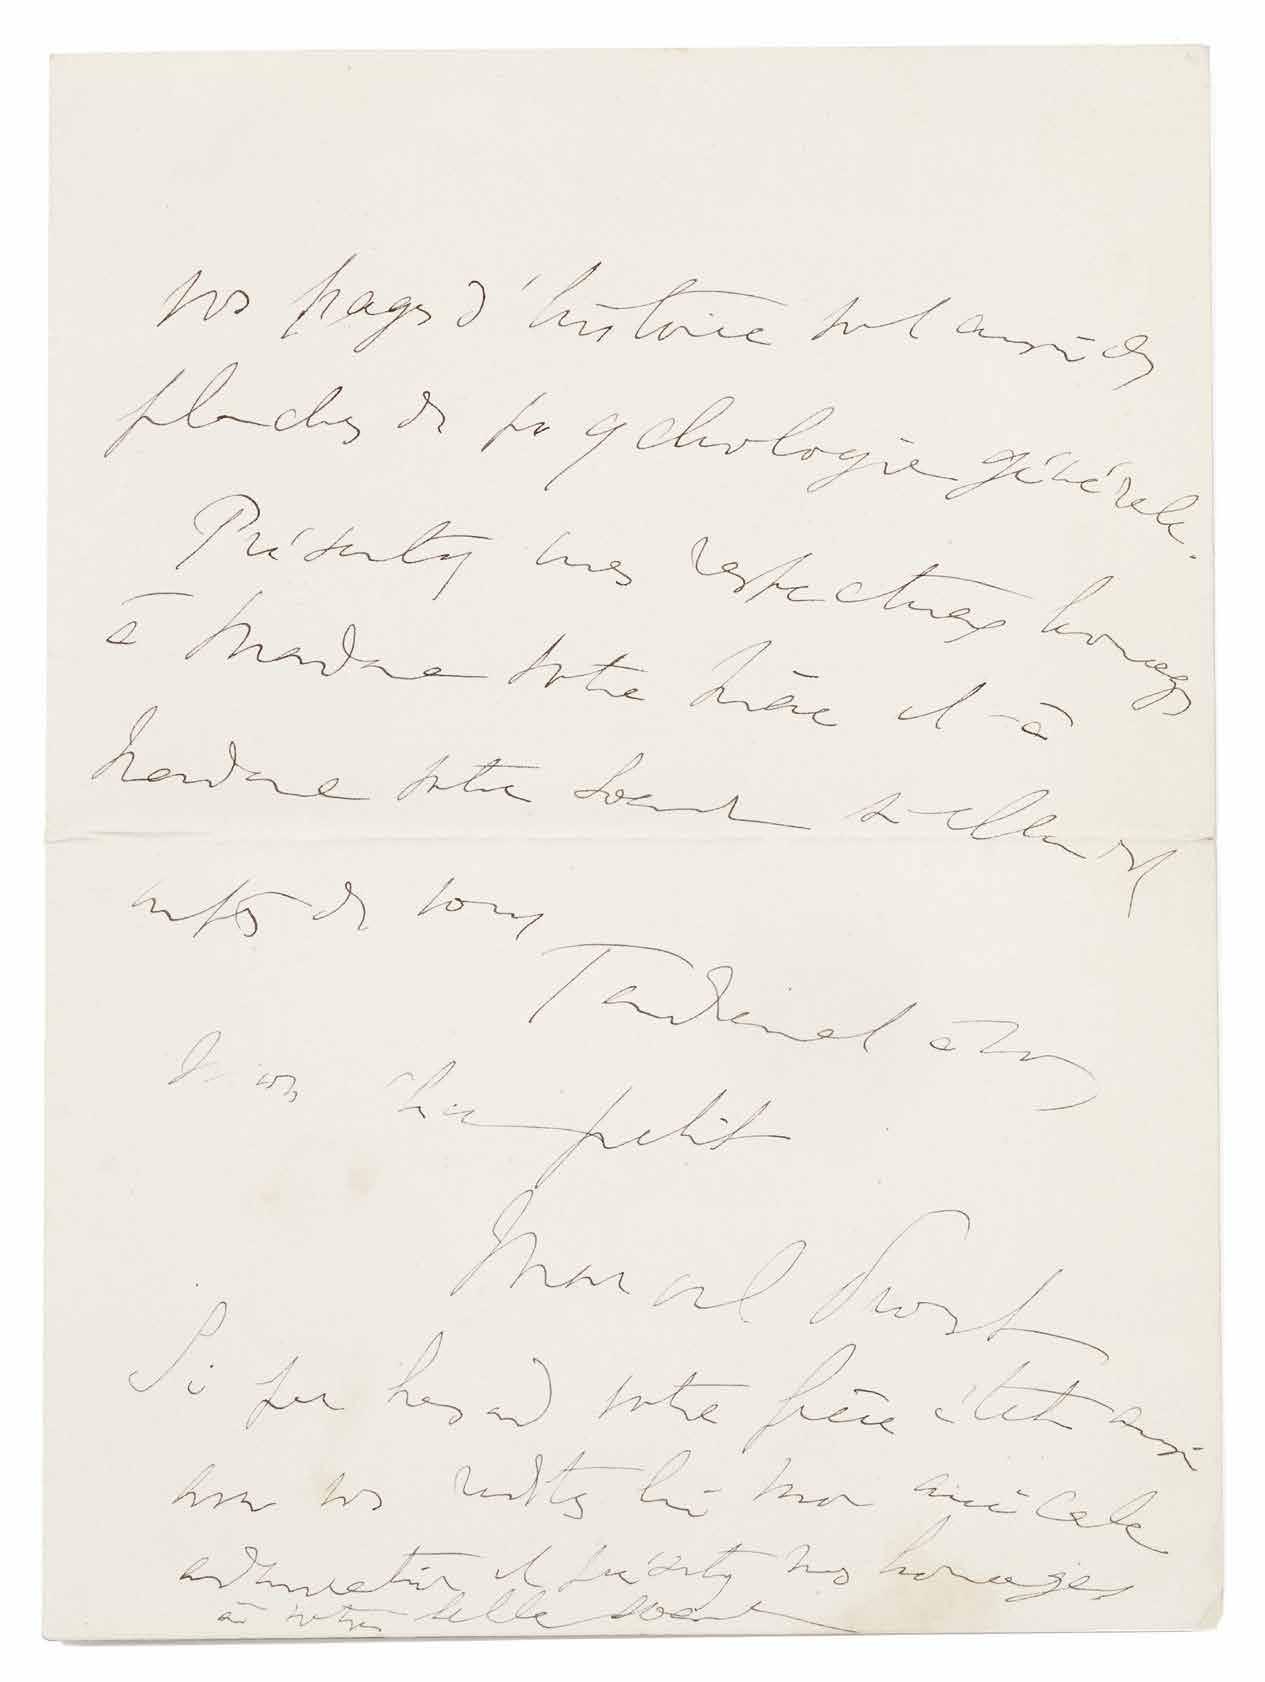 vos pages d'histoire sont aussi des
planches de psychologie générale.
Présentez mes respectueux hommages
à Madame votre Mère et à
Madame votre Soeur si elle est
auprès de vous
Tendrement à vous
Mon cher petit
Marcel Proust
Si par hasard votre frère était aussi
avec vous redites lui mon amicale
admiration et présentez mes hommages
à votre belle soeur